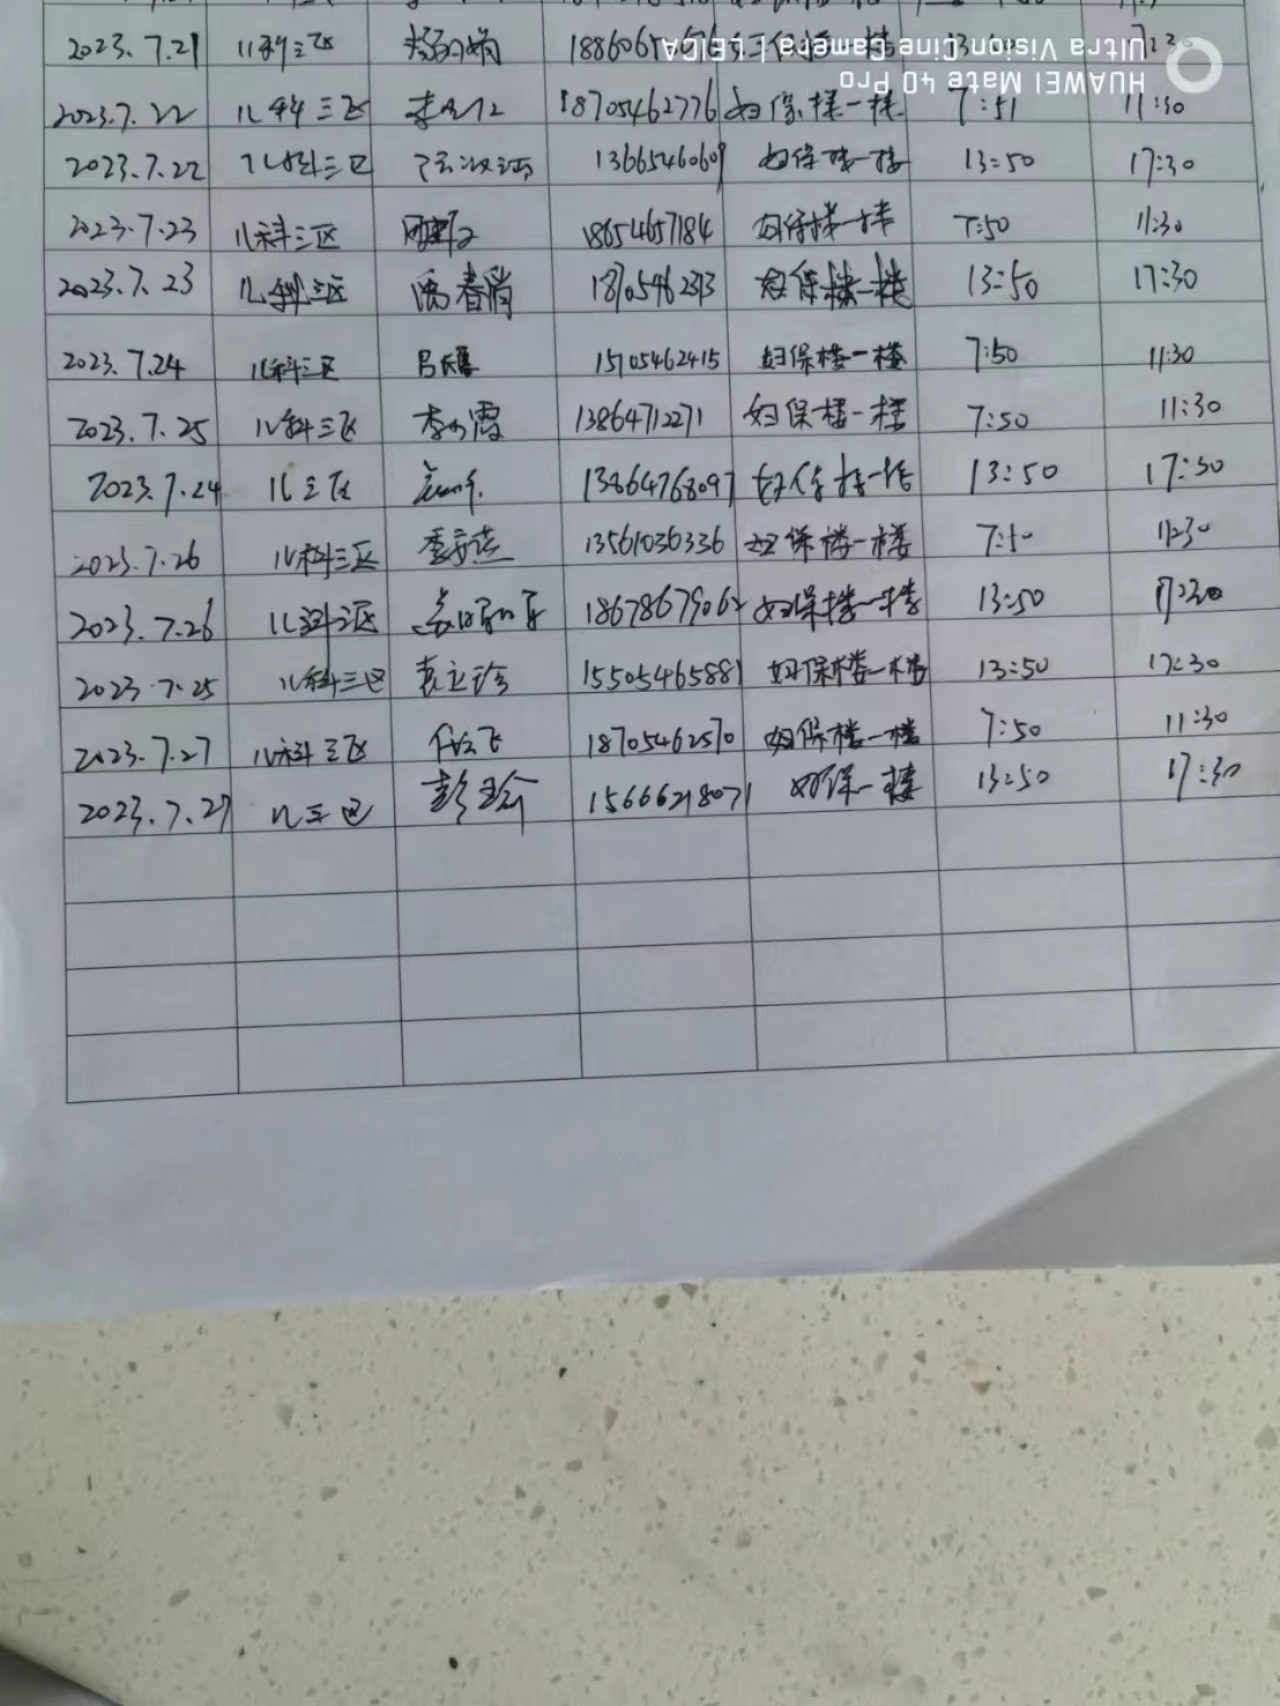 2023.7.21 儿科三区 17:30
HUAWEI Mate 40 Pro
Ultra Vision Cine Camera | LEICA
2023.7.22 儿科三区 18705462776 妇保楼一楼 7:51 11:30
2023.7.22 儿科三区 13665460609 妇保楼一楼 13:50 17:30
2023.7.23 儿科三区 18654657184 妇保楼一楼 7:50 11:30
2023.7.23 儿科三区 禹春肖 妇保楼一楼 13:50 17:30
2023.7.24 儿科三区 15705462415 妇保楼一楼 7:50 11:30
2023.7.25 儿科三区 李小霞 13864712271 妇保楼一楼 7:50 11:30
2023.7.24 儿三区 13864768097 妇保楼一楼 13:50 17:30
2023.7.26 儿科三区 13561036336 妇保楼一楼 7:50 11:30
2023.7.26 儿科三区 18678679062 妇保楼一楼 13:50 17:30
2023.7.25 儿科三区 袁立珍 15505465881 妇保楼一楼 13:50 17:30
2023.7.27 儿科三区 任飞 18705462570 妇保楼一楼 7:50 11:30
2023.7.27 儿三区 彭瑜 15666218071 妇保一楼 13:50 17:30